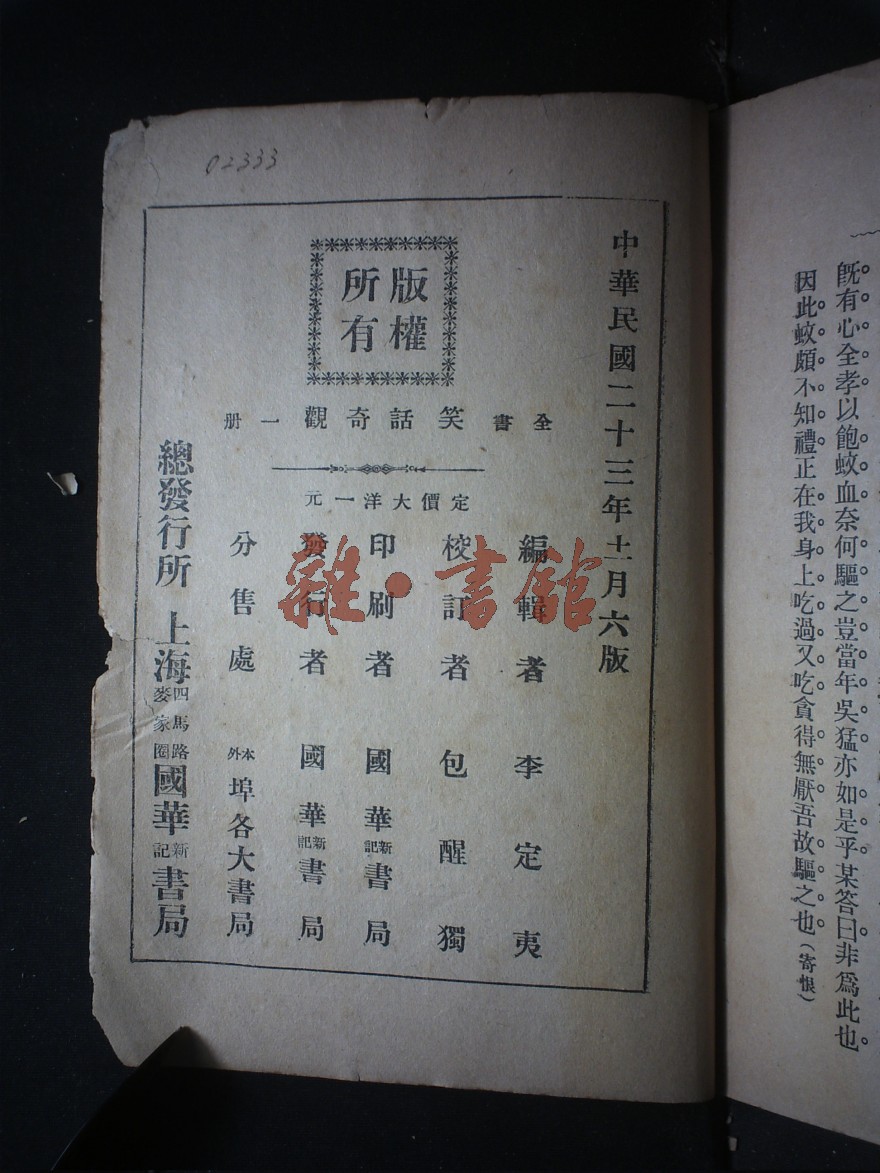 既有心全孝以飽蚊血奈何驅之豈當年吳猛亦如是乎某答曰非爲此也
因此蚊頗不知禮正在我身上吃過又吃貪得無厭吾故驅之也(寄恨)
02333
中華民國二十三年十一月六版
版權
所有
全書笑話奇觀一册
定價大洋一元
編輯者 李定夷
校訂者 包醒獨
印刷者 國華新記書局
發行者 國華新記書局
分售處 本外埠各大書局
總發行所 上海四馬路麥家圈國華新記書局
雜·書館